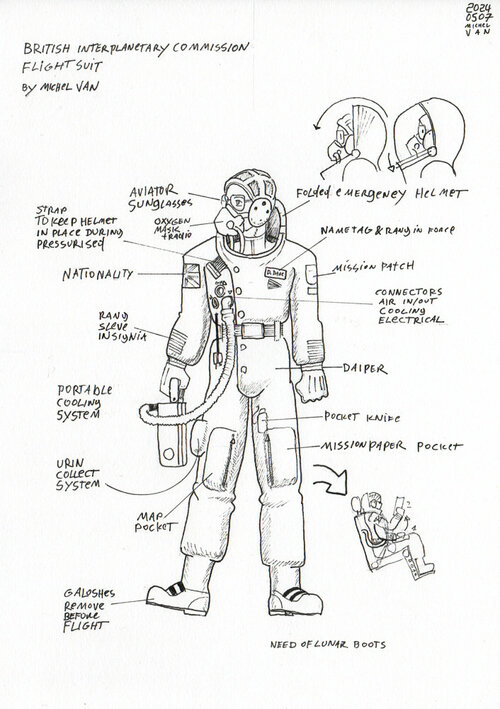 2024
0507
MICHEL
VAN
BRITISH INTERPLANETARY COMMISSION
FLIGHT SUIT
BY MICHEL VAN
AVIATOR
SUNGLASSES
FOLDED EMERGENCY HELMET
STRAP
TO KEEP HELMET
IN PLACE DURING
PRESSURISED
OXYGEN
MASK
+RADIO
NAMETAG & RANG IN FORCE
NATIONALITY
MISSION PATCH
CONNECTORS
AIR IN/OUT
COOLING
ELECTRICAL
RANG
SLEVE
INSIGNIA
DAIPER
PORTABLE
COOLING
SYSTEM
POCKET KNIFE
MISSION PAPER POCKET
URIN
COLLECT
SYSTEM
MAP
POCKET
GALOSHES
REMOVE
BEFORE
FLIGHT
NEED OF LUNAR BOOTS